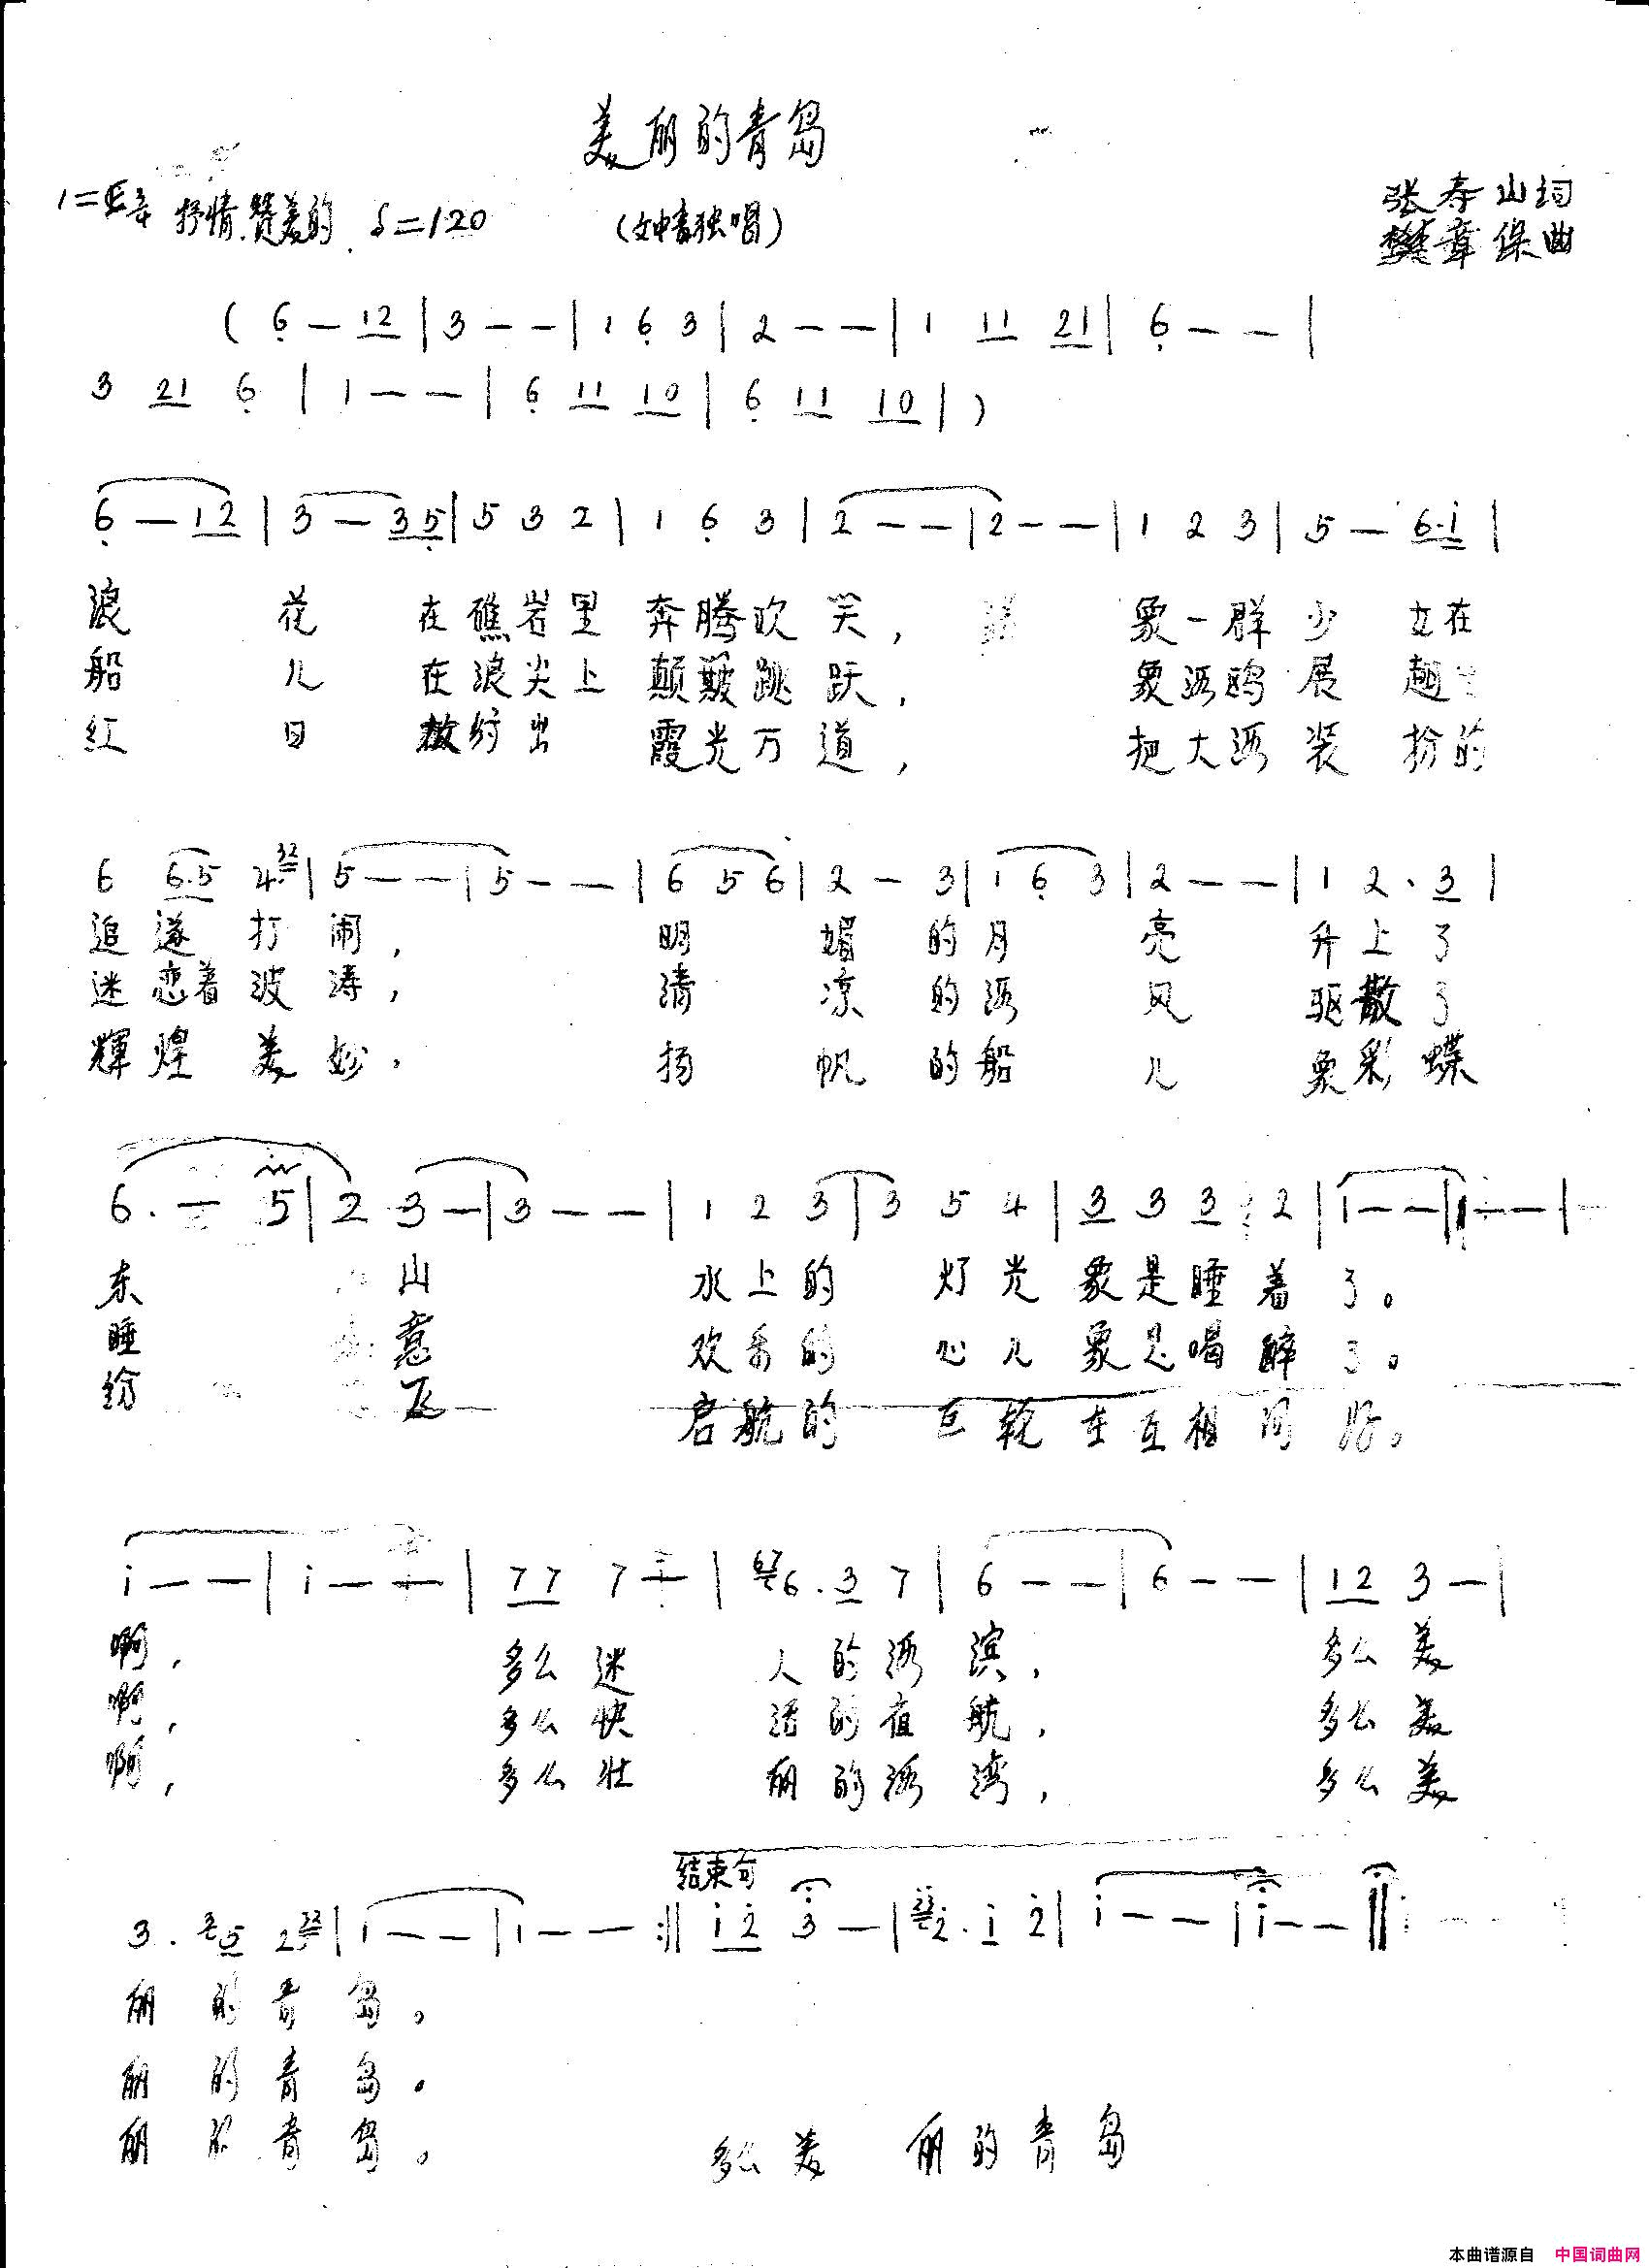 美丽的青岛
1=E 抒情.赞美的 ♩=120 (女中音独唱)
张寿山词
樊章保曲
( 6 — 12 | 3 — — | 1 6 3 | 2 — — | 1 11 21 | 6 — — |
3 21 6 | 1 — — | 6 11 10 | 6 11 10 | )
6 — 12 | 3 — 35 | 5 3 2 | 1 6 3 | 2 — — | 2 — — | 1 2 3 | 5 — 6·i |
浪 花 在礁岩里 奔腾欢笑, 象一群少 女在
船 儿 在浪尖上 颠簸跳跃, 象海鸥展 翅
红 日 放纾出 霞光万道, 把大海装 扮的
6 6·5 4 32 | 5 — — | 5 — — | 6 5 6 | 2 — 3 | 1 6 3 | 2 — — | 1 2 · 3 |
追逐打闹, 明 媚 的月 亮 升上了
迷恋着波涛, 清 凉 的海 风 驱散了
辉煌美妙, 扬 帆 的船 儿 象彩蝶
6 · — 5 | 2 3 — | 3 — — | 1 2 3 | 3 5 4 | 3 3 3 2 | 1 — — | 1 — — |
东 山 水上的 灯光象是睡着了。
睡 意 欢乐的 心儿象是喝醉了。
纷 飞 启航的 巨轮在互相问好。
i — — | i — — | 77 7 — | 67 6 · 3 7 | 6 — — | 6 — — | 12 3 — |
啊, 多么迷 人的海滨, 多么美
啊, 多么快 活的夜航, 多么美
啊, 多么壮 丽的海湾, 多么美
结束句
3 · 2 5 2 32 | 1 — — | 1 — — :‖ i 2 3 — | 2 · i 2 | i — — | i — — ‖
丽的青岛。
丽的青岛。
丽的青岛。 多么美 丽的青岛
本曲谱源自 中国词曲网